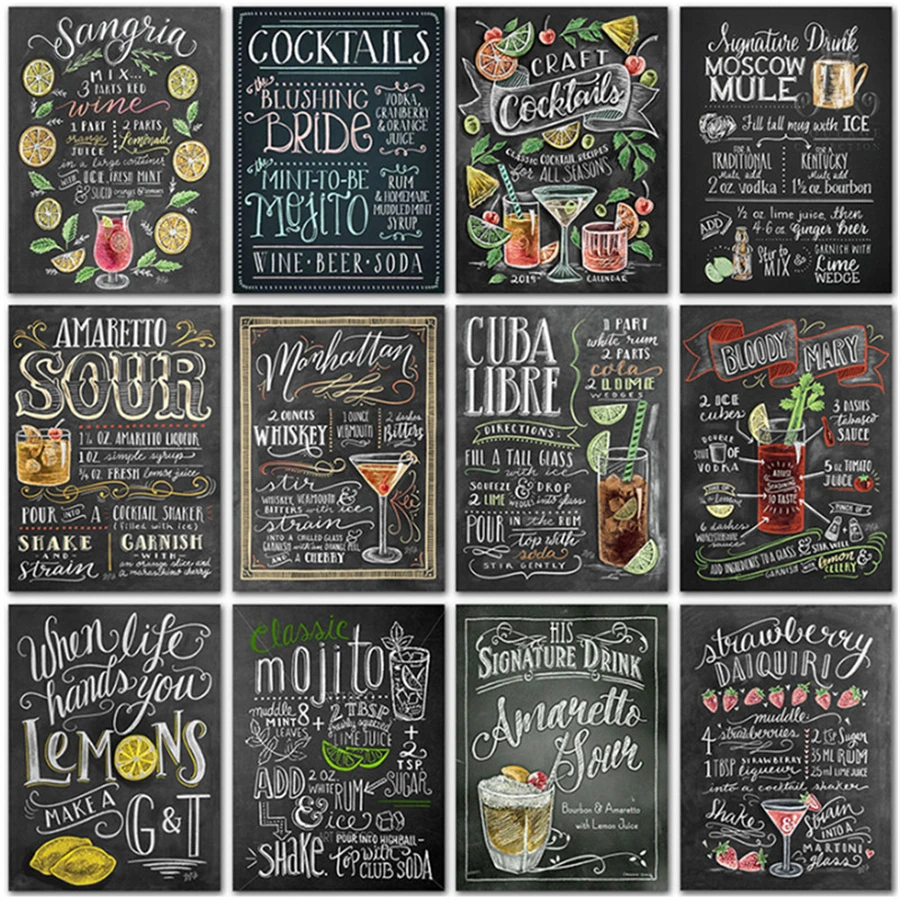 Sangria
MIX...
3 PARTS RED
wine
1 PART
orange
JUICE
2 PARTS
Lemonade
in a large container
WITH ICE, FRESH MINT
& SLICED oranges & lemons
COCKTAILS
the
BLUSHING
BRIDE
VODKA,
CRANBERRY
& ORANGE
JUICE
the
MINT-TO-BE
MOJITO
RUM
& HOMEMADE
MUDDLED MINT
SYRUP
WINE • BEER • SODA
CRAFT
Cocktails
CLASSIC COCKTAIL RECIPES
for ALL SEASONS
2019 CALENDAR
Signature Drink
MOSCOW
MULE
Fill tall mug with ICE
FOR A
TRADITIONAL
Mule, add
2 oz. vodka
FOR A
KENTUCKY
Mule, add
1½ oz. bourbon
ADD
½ oz. lime juice, then
4-6 oz. ginger beer
Stir to
MIX
&
GARNISH WITH
Lime
WEDGE
AMARETTO
SOUR
1½ OZ. AMARETTO LIQUEUR
1 OZ. simple syrup
¾ OZ. FRESH lemon juice
POUR INTO A COCKTAIL SHAKER
(filled with ice)
SHAKE
AND
Strain
GARNISH
WITH
an orange slice and
a maraschino cherry
Manhattan
2 OUNCES
WHISKEY
1 OUNCE
VERMOUTH
2 dashes
Bitters
stir
WHISKEY, VERMOUTH &
BITTERS with ice
strain
INTO A CHILLED GLASS
GARNISH with an ORANGE PEEL
AND A CHERRY
CUBA
LIBRE
1 PART
white rum
2 PARTS
cola
2 LIME
WEDGES
DIRECTIONS:
FILL A TALL GLASS
with ice
SQUEEZE & DROP
2 LIME WEDGES into glass
POUR IN the RUM
top with
soda
STIR GENTLY
BLOODY MARY
2 ICE
cubes
DOUBLE
SHOT OF
VODKA
JUICE OF
½ a Lemon
6 dashes
WORCESTERSHIRE
SAUCE
ADJUST
SEASONING
TO TASTE
3 DASHES
tabasco
SAUCE
5 OZ TOMATO
JUICE
PINCH OF
ADD INGREDIENTS TO A GLASS & STIR WELL
GARNISH WITH Lemon
& CELERY
When life
hands you
LEMONS
MAKE A
G & T
Classic
mojito
muddle
MINT 8
LEAVES
+ 2 TBSP
freshly squeezed
LIME JUICE
+
2
TSP
SUGAR
ADD 2 OZ.
WHITE RUM
& ice
SHAKE.
POUR INTO HIGHBALL-
top with
CLUB SODA
HIS
SIGNATURE DRINK
Amaretto
Sour
Bourbon & Amaretto
with Lemon Juice
strawberry
DAIQUIRI
muddle
4 strawberries
1 TBSP STRAWBERRY
liqueur
2 Tsp Sugar
35 ML RUM
25 ml LIME JUICE
into a cocktail shaker
Shake
&
Strain
INTO A
MARTINI
glass